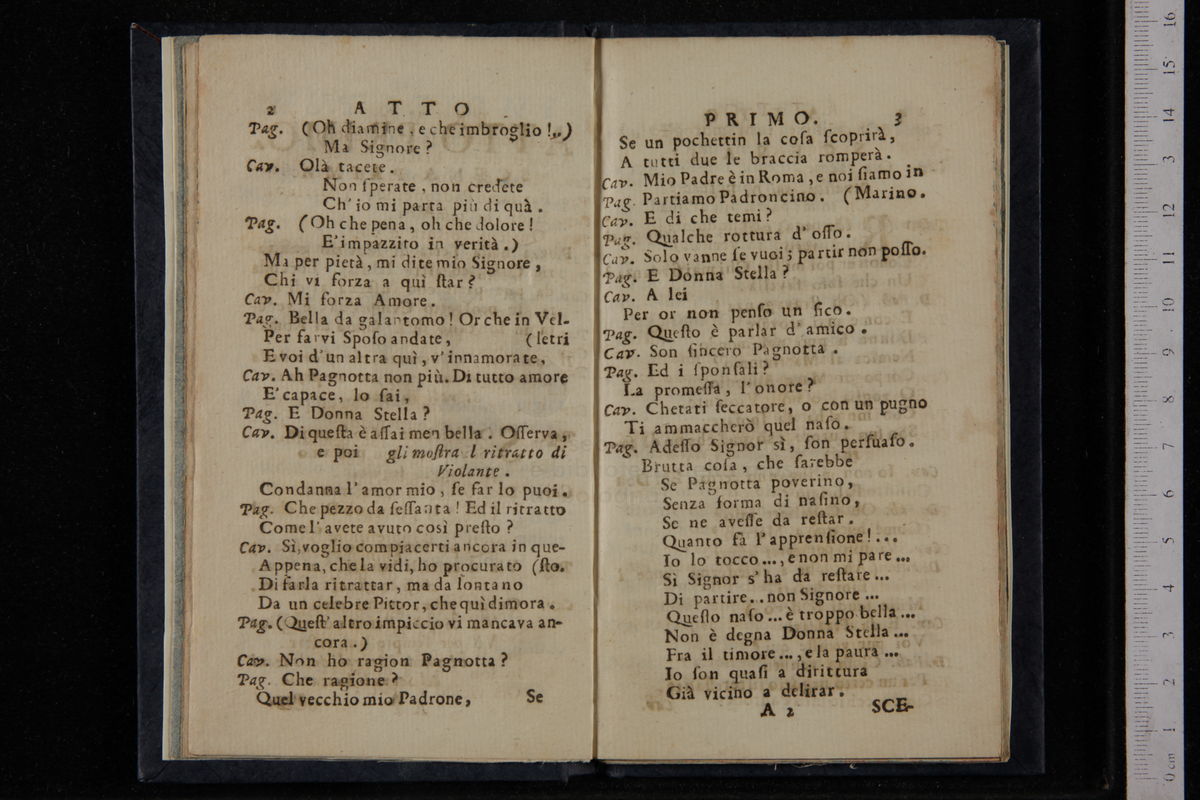 2 ATTO
Pag. (Oh diamine, e che imbroglio!..)
Ma Signore?
Cav. Olà tacete.
Non ſperate, non credete
Ch'io mi parta più di quà.
Pag. (Oh che pena, oh che dolore!
E' impazzito in verità.)
Ma per pietà, mi dite mio Signore,
Chi vi forza a qui ſtar?
Cav. Mi forza Amore.
Pag. Bella da galantomo! Or che in Vel-
Per farvi Spoſo andate, (letri
E voi d'un altra quì, v'innamorate,
Cav. Ah Pagnotta non più. Di tutto amore
E' capace, lo ſai,
Pag. E Donna Stella?
Cav. Di queſta è aſſai men bella. Oſſerva,
e poi gli moſtra l ritratto di
Violante.
Condanna l'amor mio, ſe far lo puoi.
Pag. Che pezzo da ſeſſanta! Ed il ritratto
Come l'avete avuto così preſto?
Cav. Sì, voglio compiacerti ancora in que-
Appena, che la vidi, ho procurato (ſto.
Di farla ritrattar, ma da lontano
Da un celebre Pittor, che quì dimora.
Pag. (Queſt' altro impiccio vi mancava an-
cora.)
Cav. Non ho ragion Pagnotta?
Pag. Che ragione?
Quel vecchio mio Padrone, Se
PRIMO. 3
Se un pochettin la coſa ſcoprirà,
A tutti due le braccia romperà.
Cav. Mio Padre è in Roma, e noi ſiamo in
Pag. Partiamo Padroncino. (Marino.
Cav. E di che temi?
Pag. Qualche rottura d'oſſo.
Cav. Solo vanne ſe vuoi; partir non poſſo.
Pag. E Donna Stella?
Cav. A lei
Per or non penſo un fico.
Pag. Queſto è parlar d'amico.
Cav. Son ſincero Pagnotta.
Pag. Ed i ſponſali?
La promeſſa, l'onore?
Cav. Chetati ſeccatore, o con un pugno
Ti ammaccherò quel naſo.
Pag. Adeſſo Signor sì, ſon perſuaſo.
Brutta coſa, che ſarebbe
Se Pagnotta poverino,
Senza forma di naſino,
Se ne aveſſe da reſtar.
Quanto fà l'apprenſione!...
Io lo tocco..., e non mi pare...
Sì Signor s'ha da reſtare...
Di partire.. non Signore...
Queſto naſo... è troppo bella...
Non è degna Donna Stella...
Fra il timore..., e la paura...
Io ſon quaſi a dirittura
Già vicino a delirar.
A 2 SCE-
0 cm 1 2 3 4 5 6 7 8 9 10 11 12 13 14 15 16